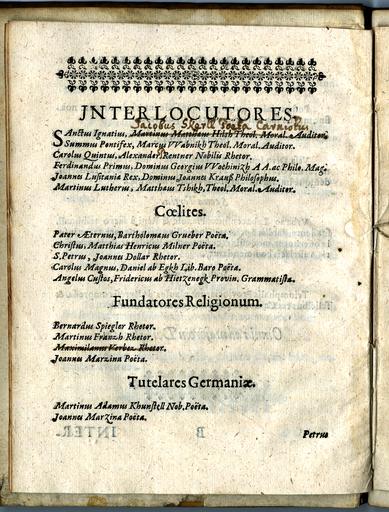 INTERLOCUTORES.
Jacobus Skerll Poeta Carniolus
Sanctus Ignatius, Theol. Moral. Auditor.
Summus Pontifex, Marcus VVabnikh Theol. Moral. Auditor.
Carolus Quintus, Alexander Rentner Nobilis Rhetor.
Ferdinandus Primus, Dominus Georgius VVochinizh A A. ac Philo. Mag.
Joannes Lusitania Rex, Dominus Joannes Krauß Philosophus.
Martinus Lutherus, Matthæus Tshikh, Theol. Moral. Auditor.
Cœlites.
Pater Æternus, Bartholomæus Grueber Poëta.
Christus, Matthias Henricus Milner Poëta.
S. Petrus, Joannes Dollar Rhetor.
Carolus Magnus, Daniel ab Egkh Lib. Baro Poëta.
Angelus Custos, Fridericus ab Hietzenegk Provin. Grammatista.
Fundatores Religionum.
Bernardus Spiegler Rhetor.
Martinus Franzh Rhetor.
Maximilianus Kerbez Rhetor.
Joannes Marzina Poëta.
Tutelares Germaniæ.
Martinus Adamus Khunstell Nob. Poëta.
Joannes Marzina Poëta.
Petrus